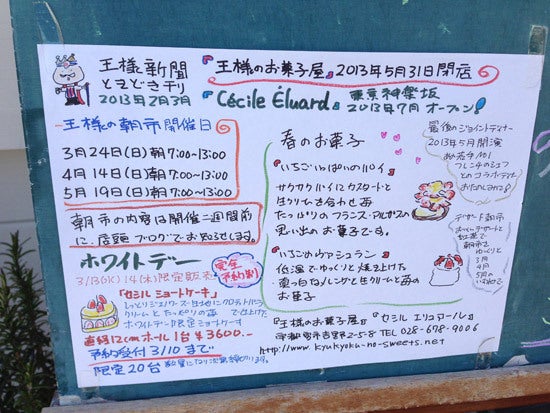 王様新聞
ときどき刊
2013年2月3月
『王様のお菓子屋』2013年5月31日閉店
『Cécile Éluard』東京神楽坂
2013年7月オープン!
王様の朝市開催日
3月24日(日)朝7:00~13:00
4月14日(日)朝7:00~13:00
5月19日(日)朝7:00~13:00
朝市の内容は開催二週間前
に、店頭、ブログでお知らせします。
ホワイトデー
3/13(水)14(木)限定販売
完全
予約制
『セシル ショートケーキ』
クリームとたっぷりの苺で仕上げた
ホワイトデー限定ショートケーキ
直径12cmホール1台¥3600.-
予約受付3/10まで
限定20台
春のお菓子
『いちごいっぱいのパイ』
サクサクパイにカスタードと
生クリームを合わせ苺
たっぷりのフランス・アルザスの
思い出のお菓子です。
『いちごのヴァシュラン』
低温でゆっくりと焼き上げた
真っ白なメレンゲと生クリームと苺の
お菓子
最後のジョイントディナー
2013年5月開演
フレンチのシェフ
とのコラボディナー
おたのしみに
デザート朝市
紅茶で
朝市を
ゆっくりと
3月
4月
5月
『王様のお菓子屋』『セシル エリュアール』
宇都宮市吉野2-5-8 TEL 028-678-9006
http://www.kyukyoku-no-sweets.net